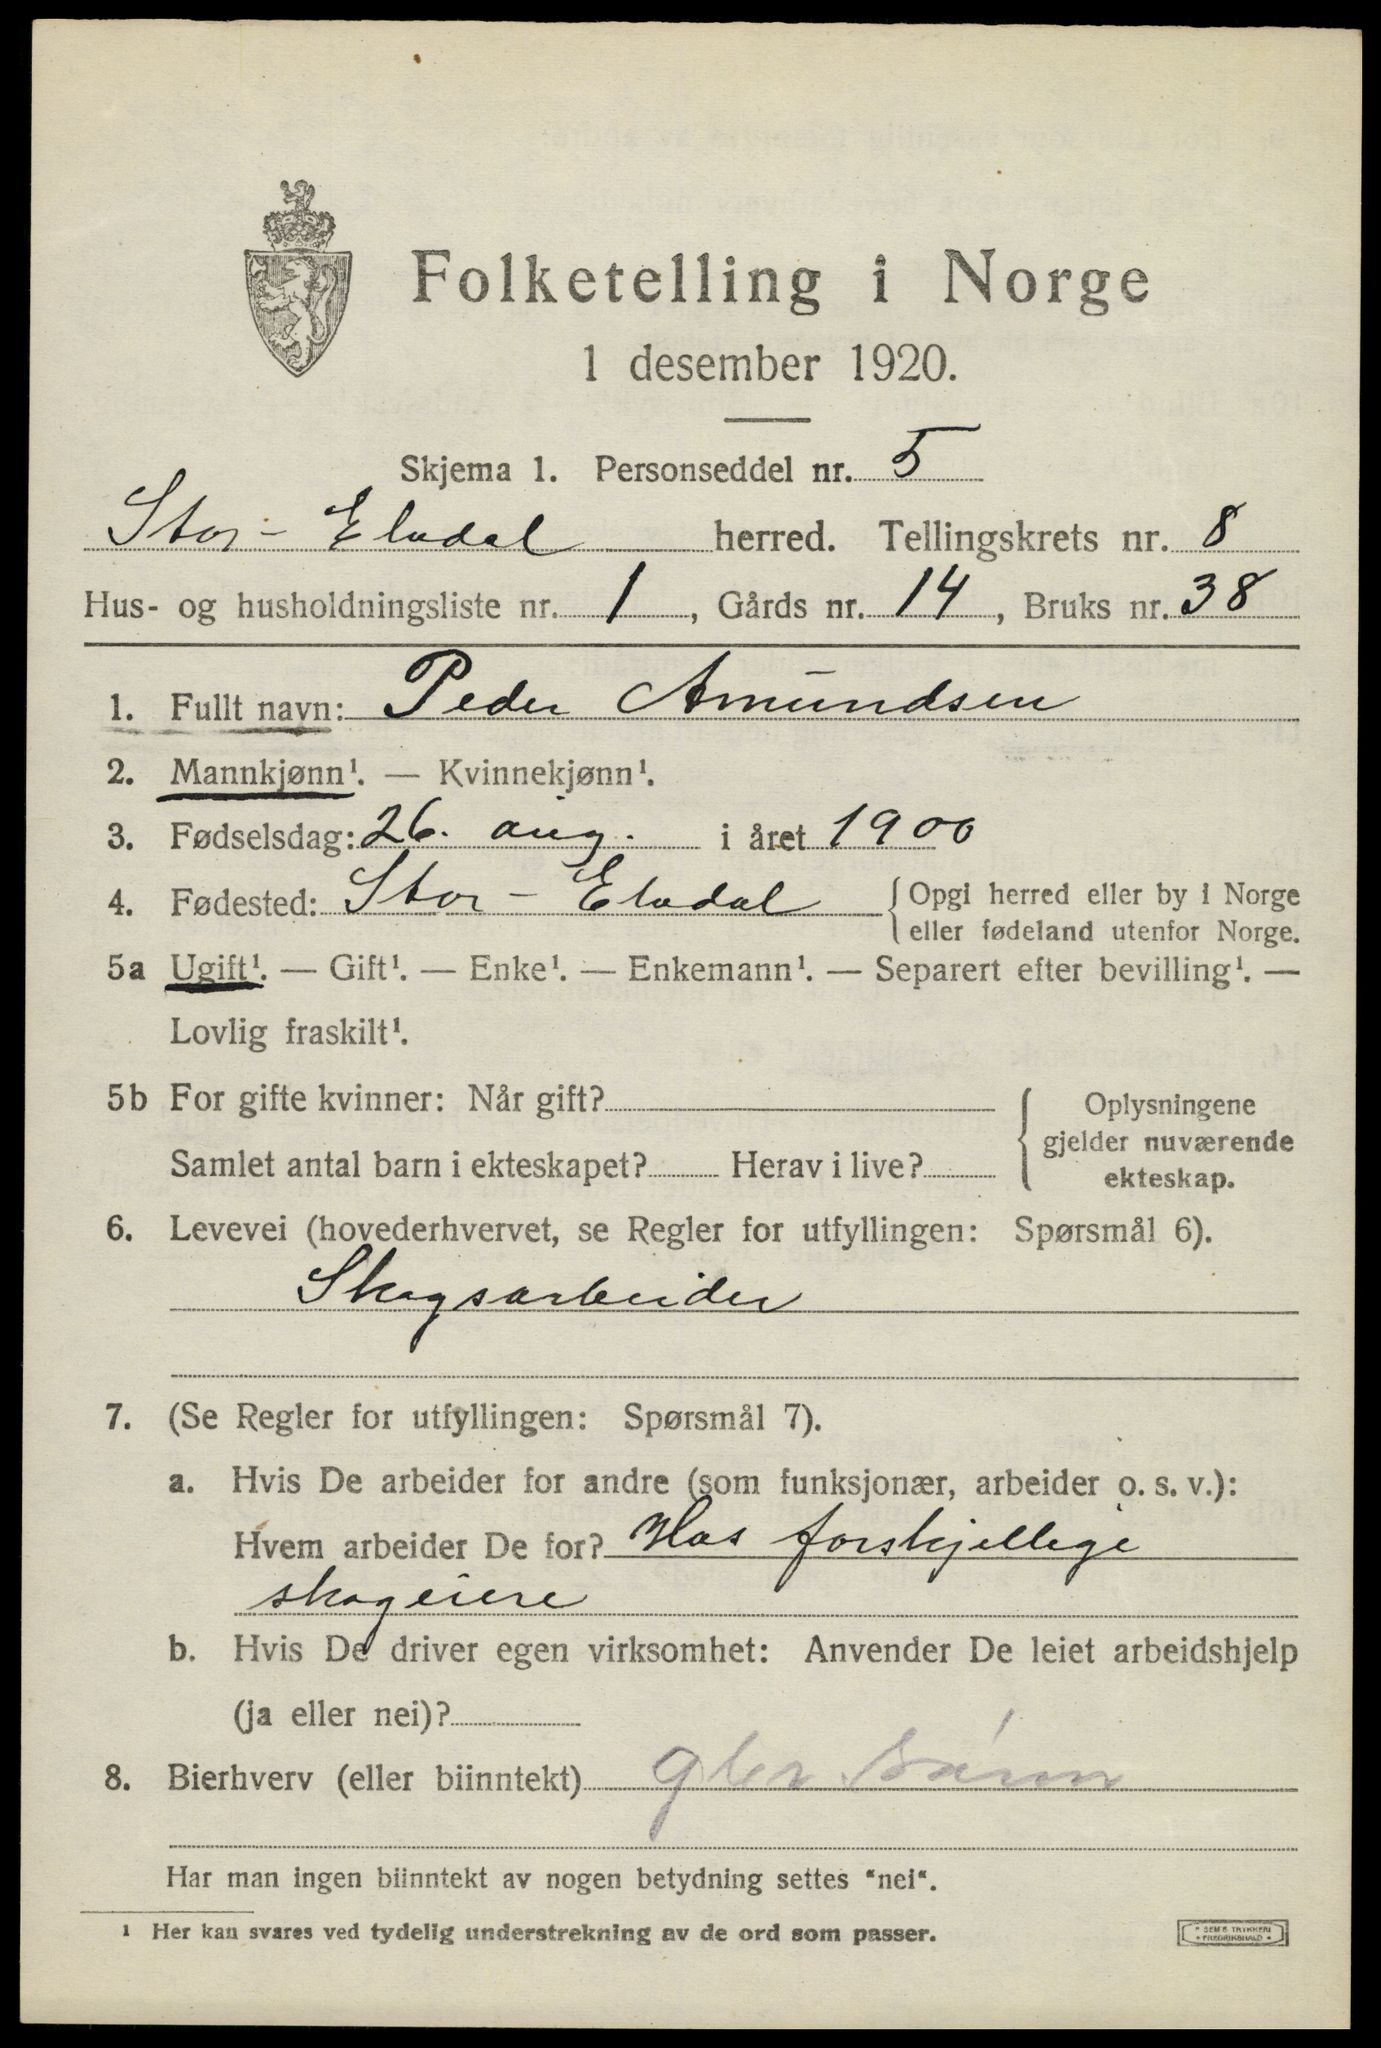 Folketelling i Norge
1 desember 1920.
Skjema 1. Personseddel nr. 5
Stor-Elvdal herred. Tellingskrets nr. 8
Hus- og husholdningsliste nr. 1, Gårds nr. 14, Bruks nr. 38
1. Fullt navn: Peder Amundsen
2. Mannkjønn¹. — Kvinnekjønn¹.
3. Fødselsdag: 26. aug. i året 1900
4. Fødested: Stor-Elvdal { Opgi herred eller by i Norge
eller fødeland utenfor Norge.
5a Ugift¹. — Gift¹. — Enke¹. — Enkemann¹. — Separert efter bevilling¹. —
Lovlig fraskilt¹.
5b For gifte kvinner: Når gift? { Oplysningene
gjelder nuværende
Samlet antal barn i ekteskapet? Herav i live?
ekteskap.
6. Levevei (hovederhvervet, se Regler for utfyllingen: Spørsmål 6).
Skogsarbeider
7. (Se Regler for utfyllingen: Spørsmål 7).
a. Hvis De arbeider for andre (som funksjonær, arbeider o. s. v.):
Hvem arbeider De for? Hos forskjellige
skogeiere
b. Hvis De driver egen virksomhet: Anvender De leiet arbeidshjelp
(ja eller nei)?
8. Bierhverv (eller biinntekt)
Har man ingen biinntekt av nogen betydning settes "nei".
¹ Her kan svares ved tydelig understrekning av de ord som passer.
* SEM & TRYKKERI
* FREDRIKSHALD *